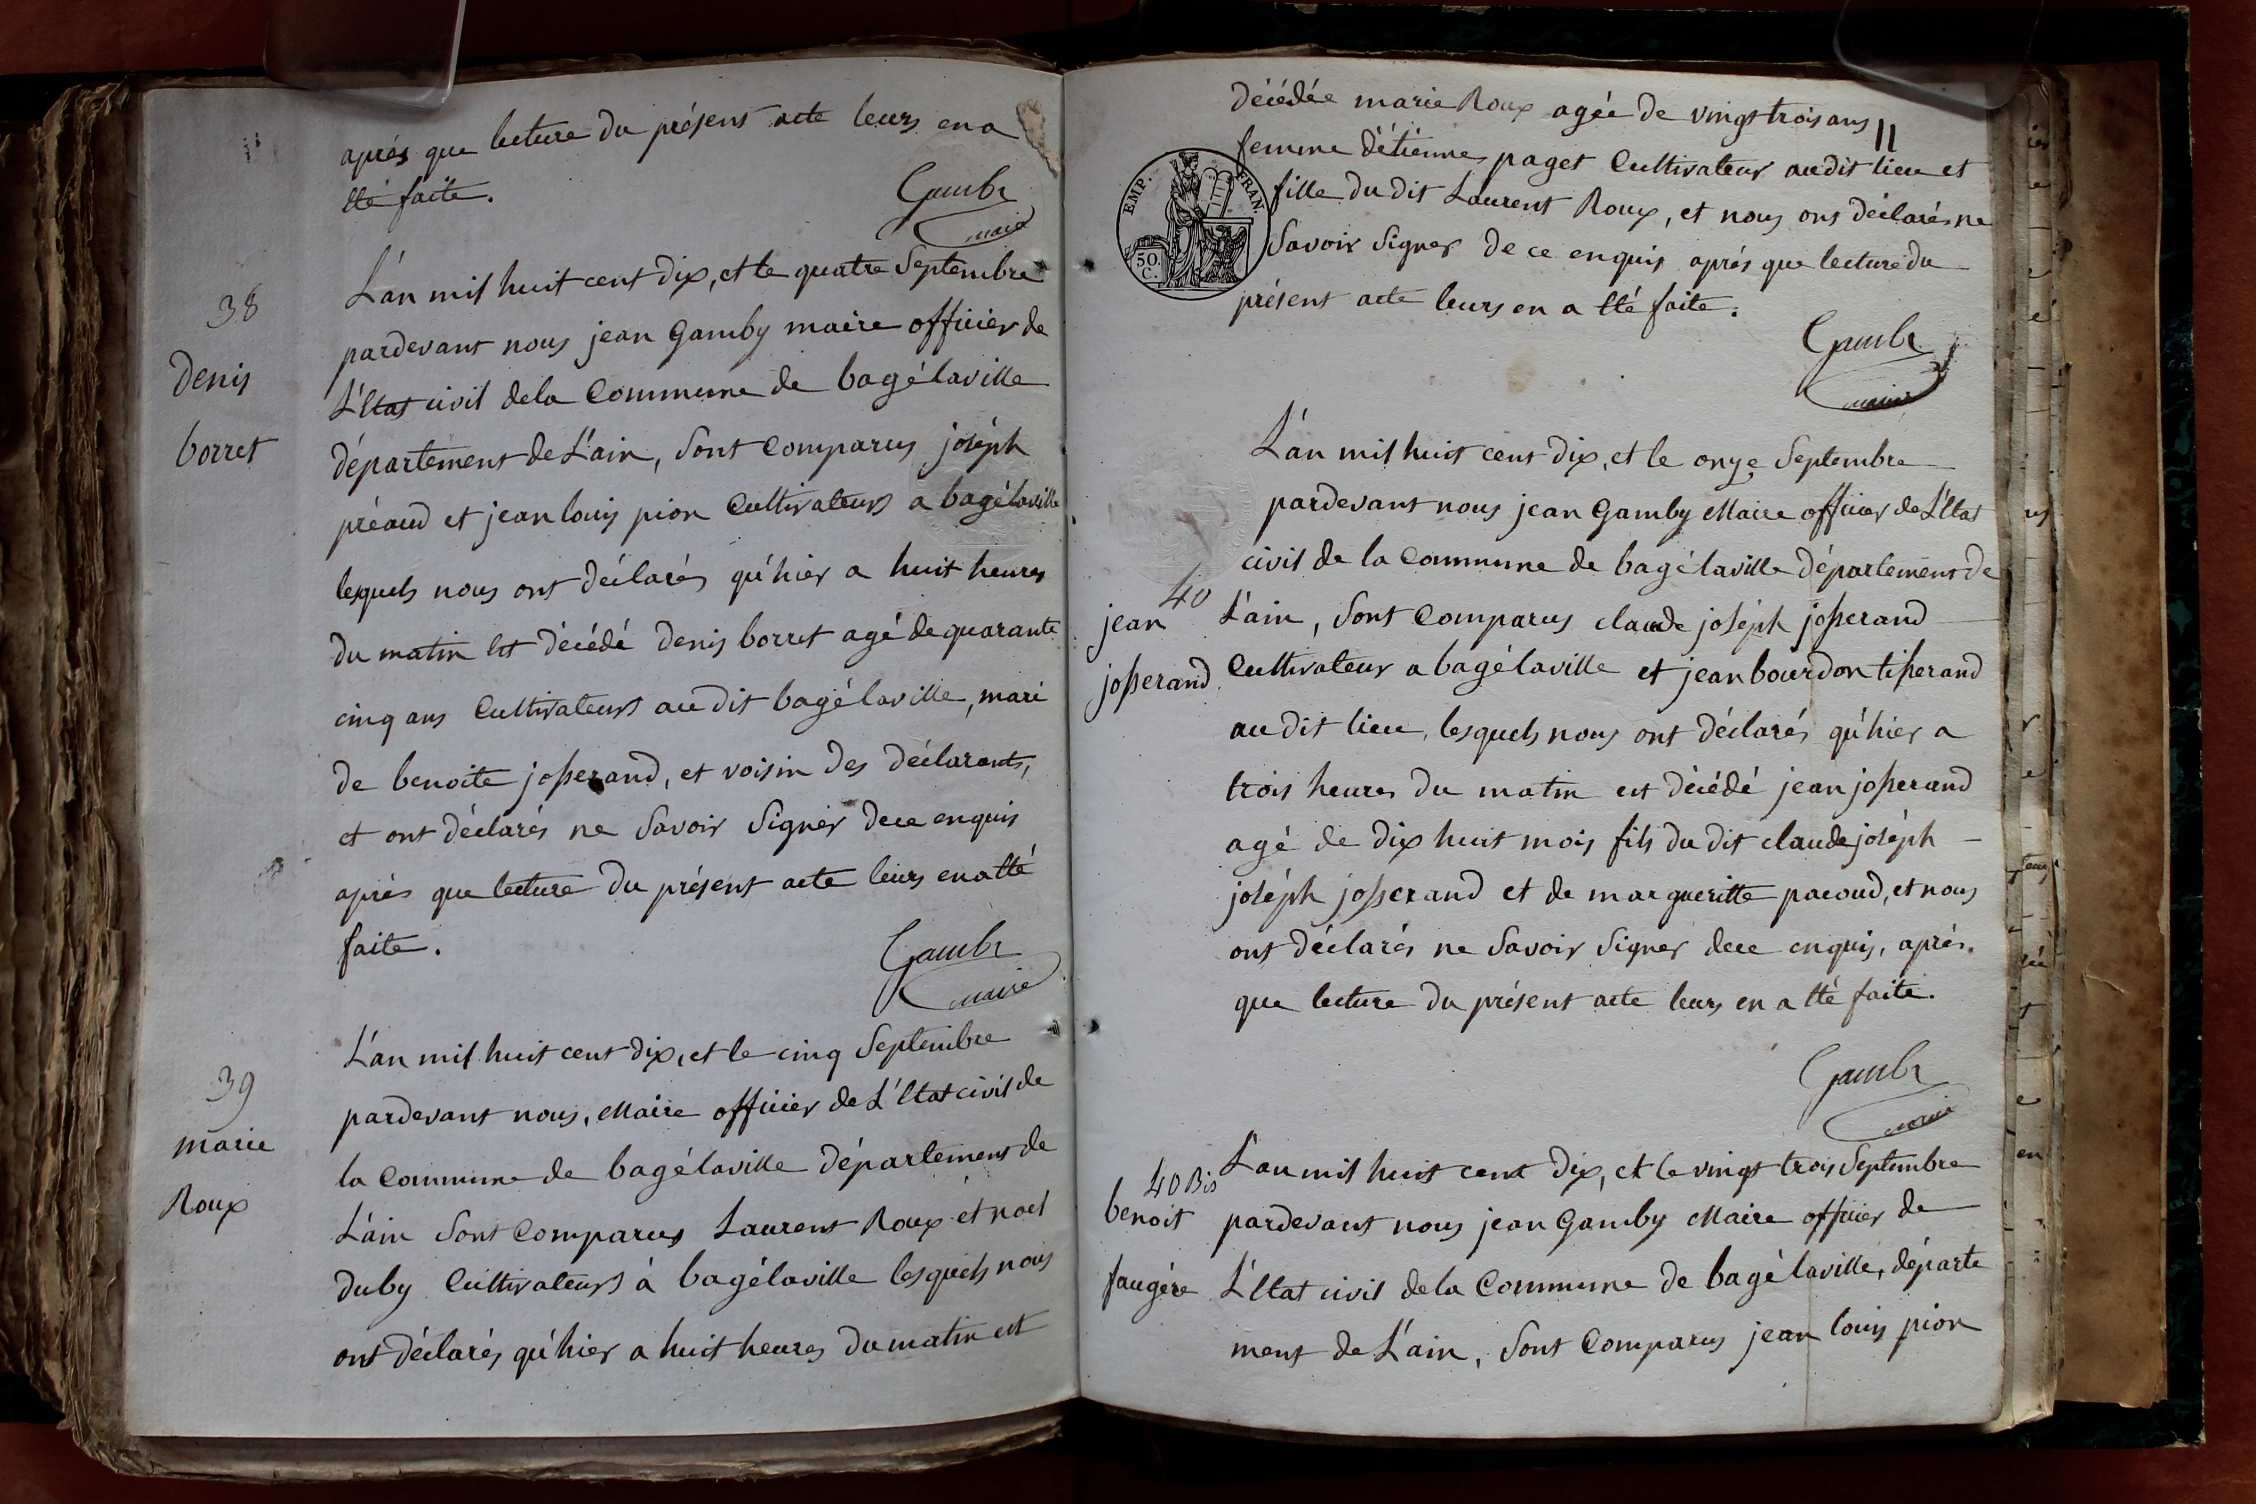 après que lecture du présent acte leurs en a
été faite.
Gambi
maire
38
denis
borret
L'an mil huit cent dix, et le quatre Septembre
pardevant nous jean Gamby maire officier de
L'Etat civil de la Commune de bagélaville
département de L'ain, Sont Comparus joséph
préaud et jean louis pion Cultivateurs a bagélaville
lesquels nous ont déclarés qu'hier a huit heures
du matin Est décédé denis borret agé de quarante
cinq ans Cultivateurs au dit bagélaville, mari
de benoite josserand, et voisin des déclarants,
et ont déclarés ne Savoir Signer de ce enquis
après que lecture du présent acte leurs en a été
faite.
Gambi
maire
39
marie
Roux
L'an mil huit cent dix, et le cinq Septembre
pardevant nous, Maire officier de L'Etat civil de
la Commune de bagélaville département de
L'ain Sont Comparus Laurent Roux et noel
duby Cultivateurs à bagélaville lesquels nous
ont déclarés qu'hier a huit heures du matin est
décédée marie Roux agée de vingt trois ans
11
femme d'étienne paget Cultivateur au dit lieu et
EMP. FRAN.
50. C.
fille du dit Laurent Roux, et nous ont déclarés ne
Savoir Signer de ce enquis après que lecture du
présent acte leurs en a été faite.
Gambi
maire
40
jean
josserand
L'an mil huit cent dix, et le onze Septembre
pardevant nous jean Gamby Maire officier de L'Etat
civil de la Commune de bagélaville département de
L'ain, Sont Comparus claude joséph josserand
Cultivateur a bagélaville et jean bourdon tisserand
au dit lieu, lesquels nous ont déclarés qu'hier a
trois heures du matin est décédé jean josserand
agé de dix huit mois fils du dit claude joséph
joséph josserand et de margueritte pacoud, et nous
ont déclarés ne Savoir Signer de ce enquis, après
que lecture du présent acte leurs en a été faite.
Gambi
maire
40 Bis
benoit
faugére
L'an mil huit cent dix, et le vingt trois Septembre
pardevant nous jean Gamby Maire officier de
L'Etat civil de la Commune de bagélaville, départe
ment de L'ain, Sont Comparus jean louis pion